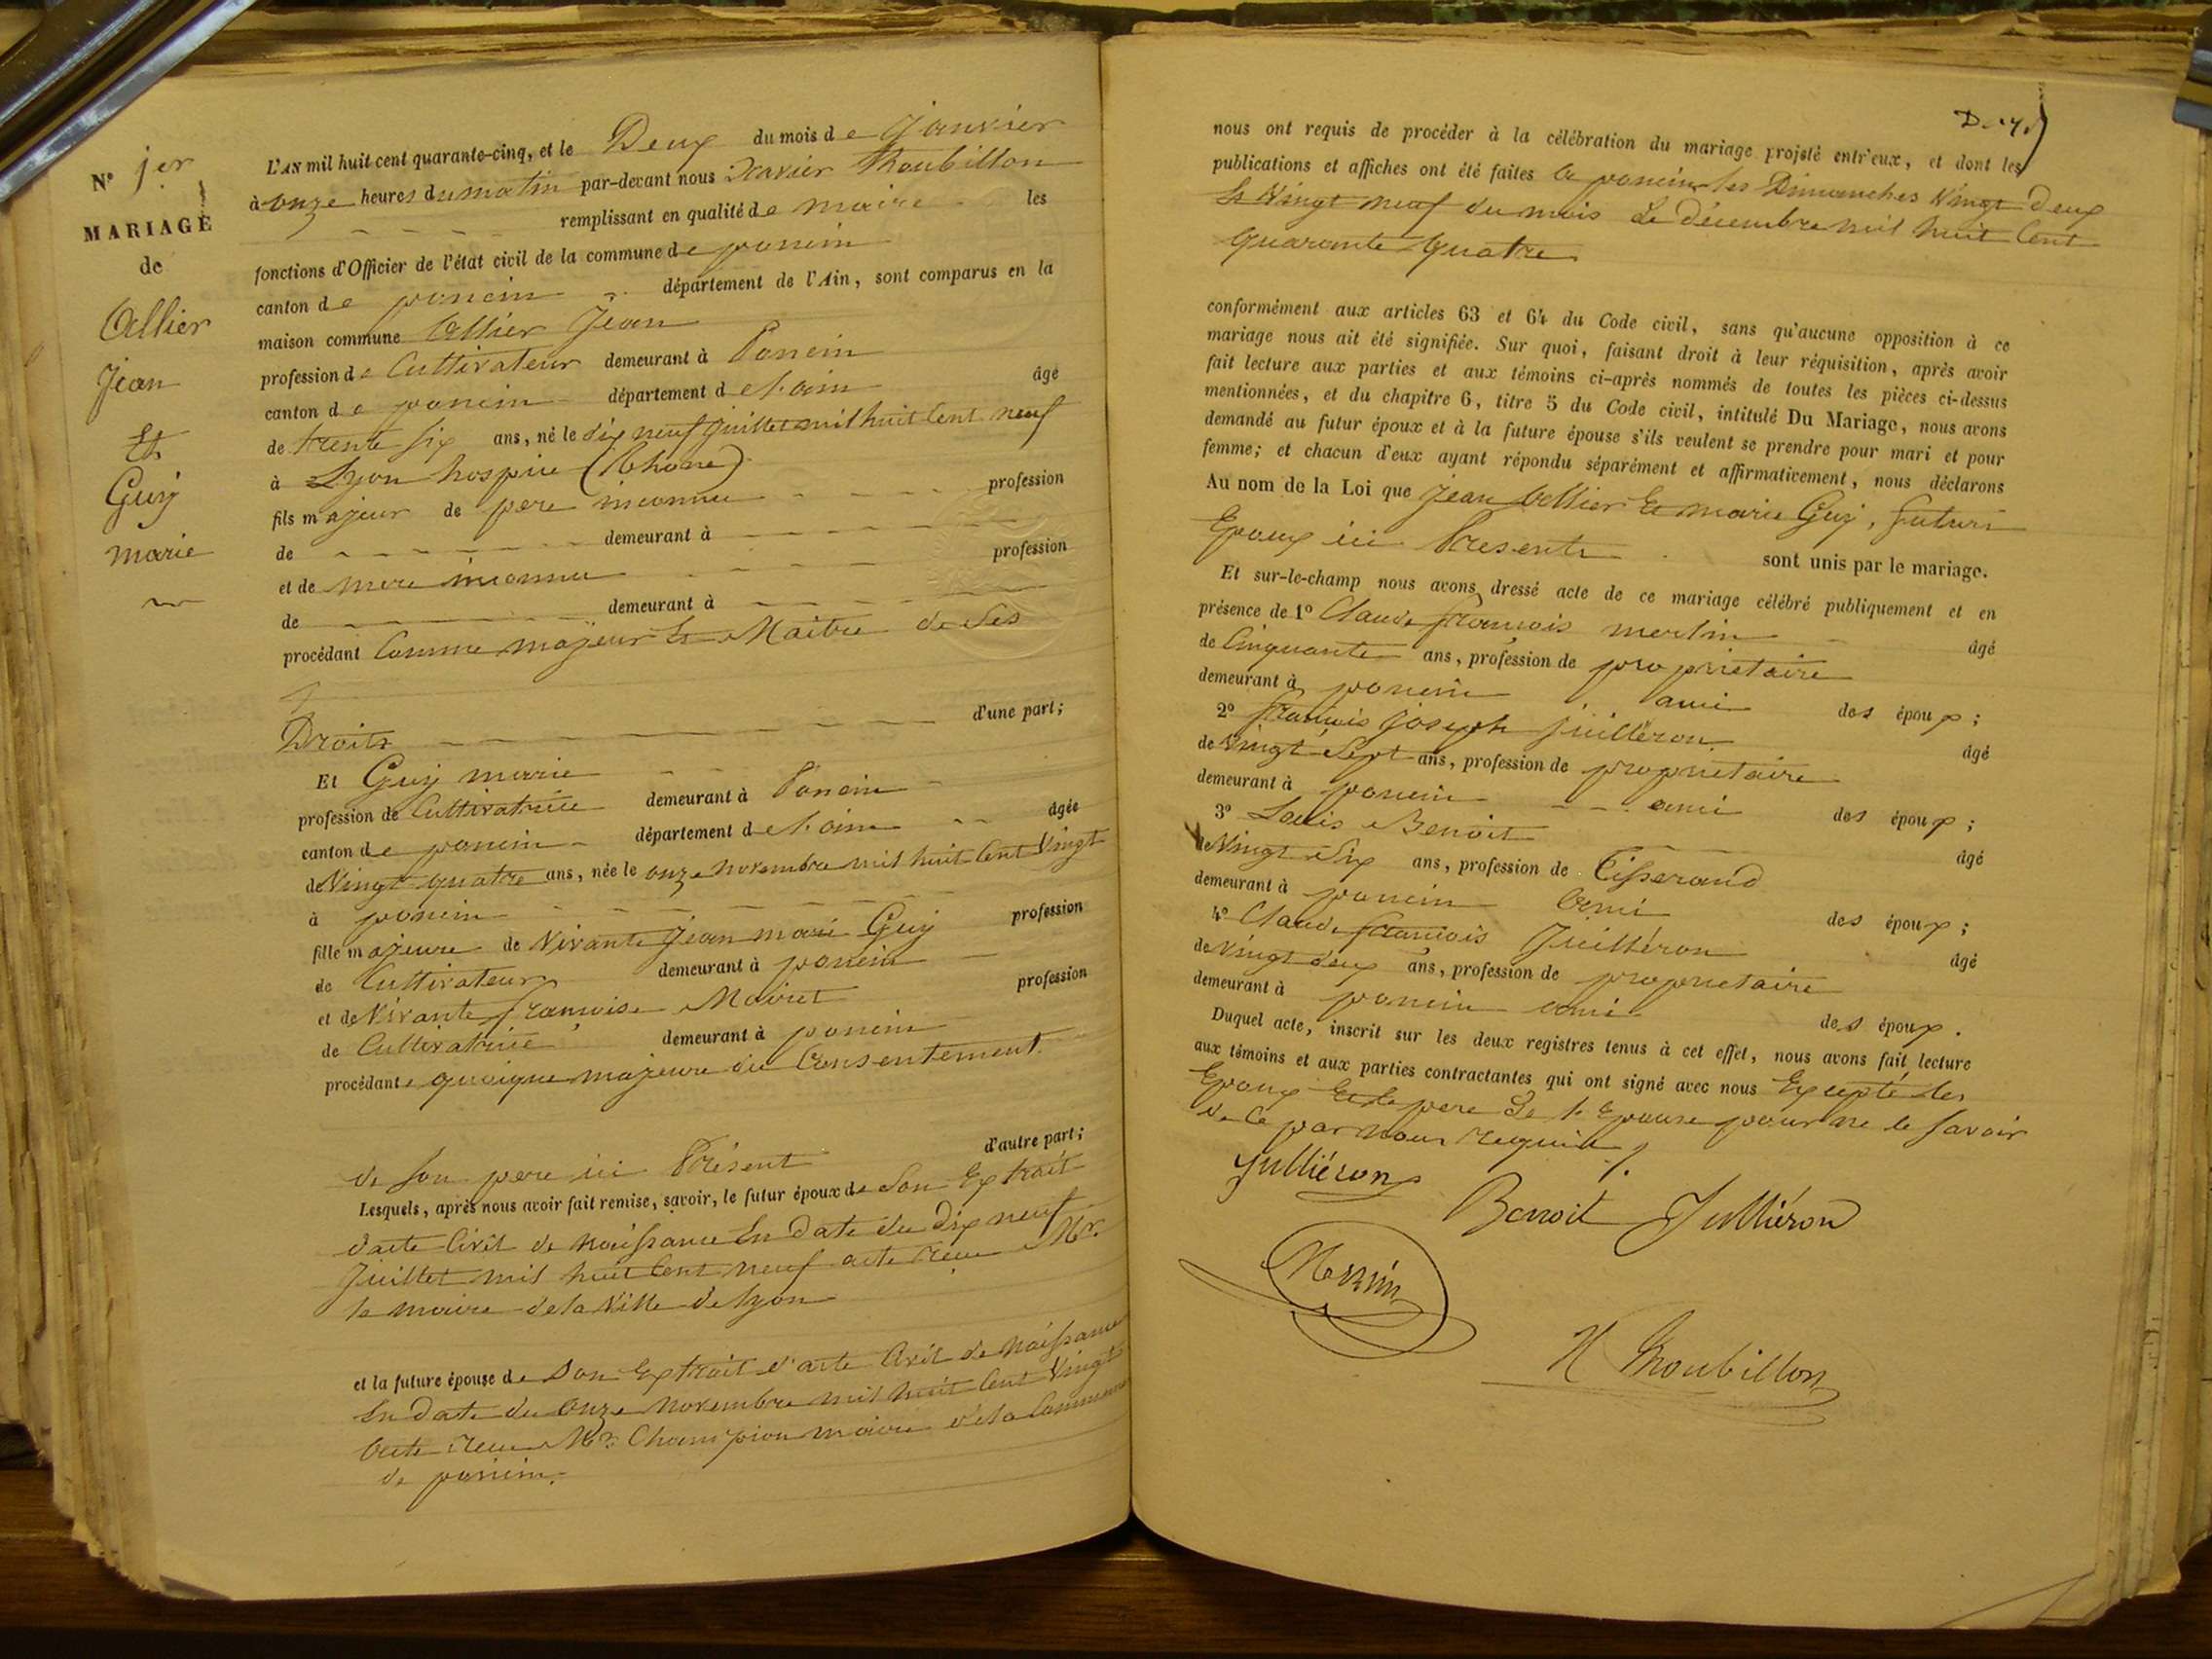 N° 1er
MARIAGE
de
Allier
Jean
Et
Guy
marie
L'AN mil huit cent quarante-cinq, et le Deux du mois de Janvier
à onze heures du matin par-devant nous Xavier Thoubillon
remplissant en qualité de maire les
fonctions d'Officier de l'état civil de la commune de poncin
canton de poncin département de l'Ain, sont comparus en la
maison commune Allier Jean
profession de Cultivateur demeurant à Poncin
canton de poncin département de l'ain âgé
de trente six ans, né le dix neuf juillet mil huit Cent neuf
à Lyon hospice (Rhone)
fils majeur de pere inconnu profession
de demeurant à
et de mere inconnue profession
de demeurant à
procédant Comme majeur Et Maitre de Ses
Droits d'une part;
Et Guy marie
profession de Cultivatrice demeurant à Poncin
canton de poncin département de l'ain âgée
de Vingt quatre ans, née le onze novembre mil huit Cent Vingt
à poncin
fille majeure de Vivante Jean marie Guy profession
de Cultivateur demeurant à poncin
et de Vivante francoise Mairet profession
de Cultivatrice demeurant à poncin
procédante quoique majeure du Consentement
de son pere ici Présent d'autre part;
Lesquels, après nous avoir fait remise, savoir, le futur époux de Son Extrait
d'acte Civil de naissance En date du dix neuf
Juillet mil huit Cent neuf acte recu Mr.
le maire de la Ville de lyon
et la future épouse de Son Extrait d'acte Civil de naissance
En date du Onze novembre mil huit Cent Vingt
Acte recu Mr. Champion maire de la Commune
de poncin.
nous ont requis de procéder à la célébration du mariage projeté entr'eux, et dont les
publications et affiches ont été faites a poncin les Dimanches Vingt deux
Et Vingt neuf du mois de décembre mil huit Cent
quarante quatre
conformément aux articles 63 et 64 du Code civil, sans qu'aucune opposition à ce
mariage nous ait été signifiée. Sur quoi, faisant droit à leur réquisition, après avoir
fait lecture aux parties et aux témoins ci-après nommés de toutes les pièces ci-dessus
mentionnées, et du chapitre 6, titre 5 du Code civil, intitulé Du Mariage, nous avons
demandé au futur époux et à la future épouse s'ils veulent se prendre pour mari et pour
femme; et chacun d'eux ayant répondu séparément et affirmativement, nous déclarons
Au nom de la Loi que Jean Allier Et marie Guy, futurs
Epoux ici Presents sont unis par le mariage.
Et sur-le-champ nous avons dressé acte de ce mariage célébré publiquement et en
présence de 1° Claude francois merlin âgé
de Cinquante ans, profession de proprietaire
demeurant à poncin ami des époux;
2° francois joseph juilléron âgé
de Vingt Sept ans, profession de proprietaire
demeurant à poncin ami des époux;
3° Louis Benoit âgé
de Vingt Six ans, profession de Tisserand
demeurant à poncin Ami des époux;
4° Claude francois Juilléron âgé
de Vingt deux ans, profession de proprietaire
demeurant à poncin ami des époux.
Duquel acte, inscrit sur les deux registres tenus à cet effet, nous avons fait lecture
aux témoins et aux parties contractantes qui ont signé avec nous Excepté les
Epoux Et le pere de l'Epouse pour ne le savoir
de ce par nous requis
Julliéron
Benoit Julliéron
X Thoubillon